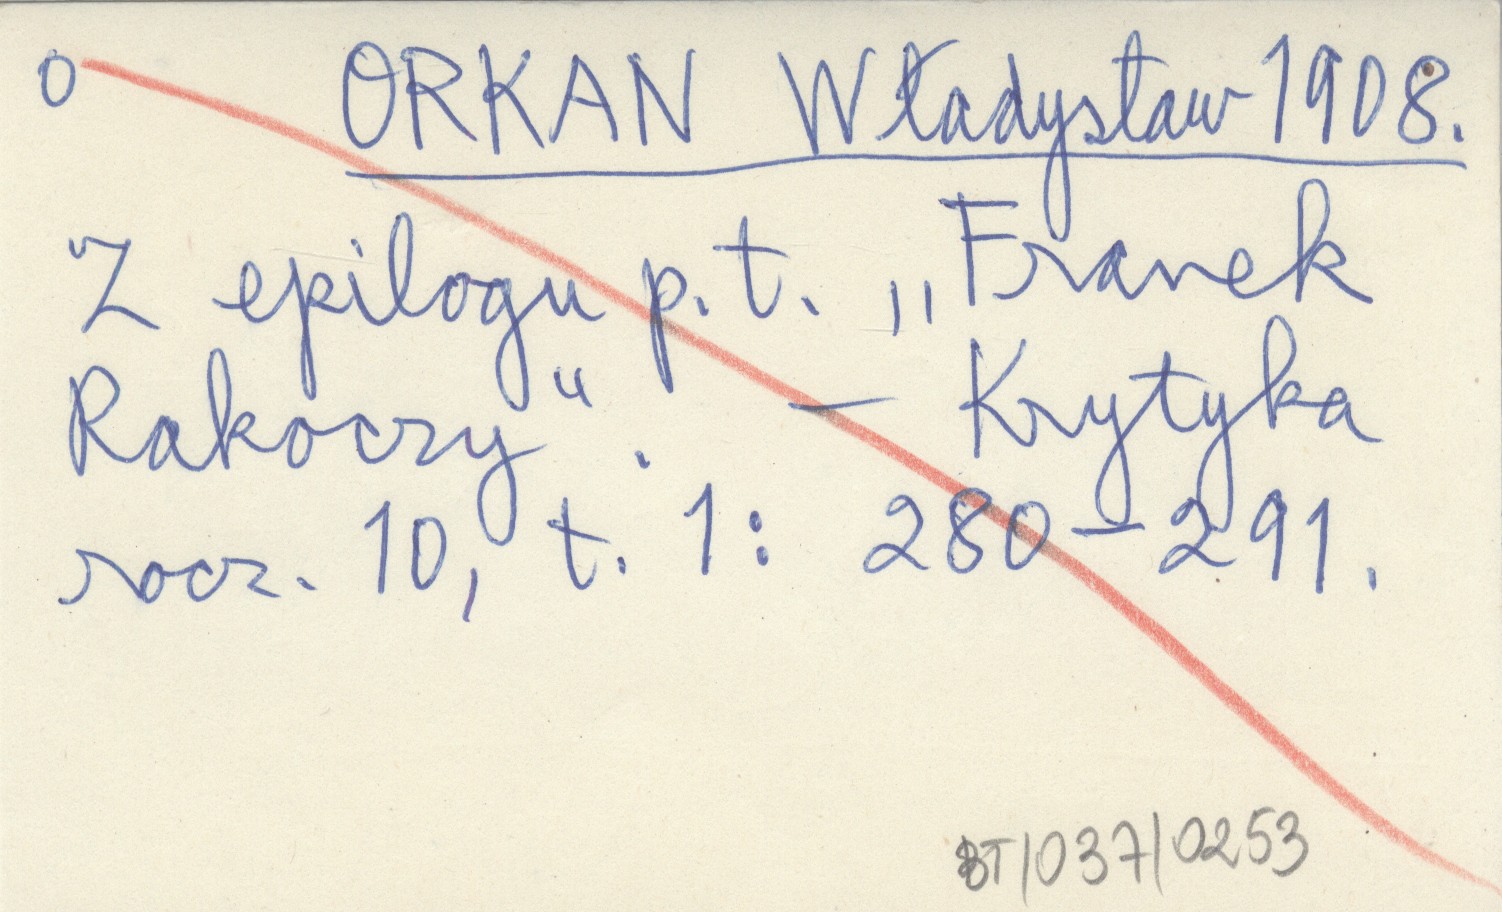 O ORKAN Władysław 1908.
Z epilogu p.t. „Franek
Rakoczy". — Krytyka
rocz. 10, t. 1: 280-291.
BT/037/0253